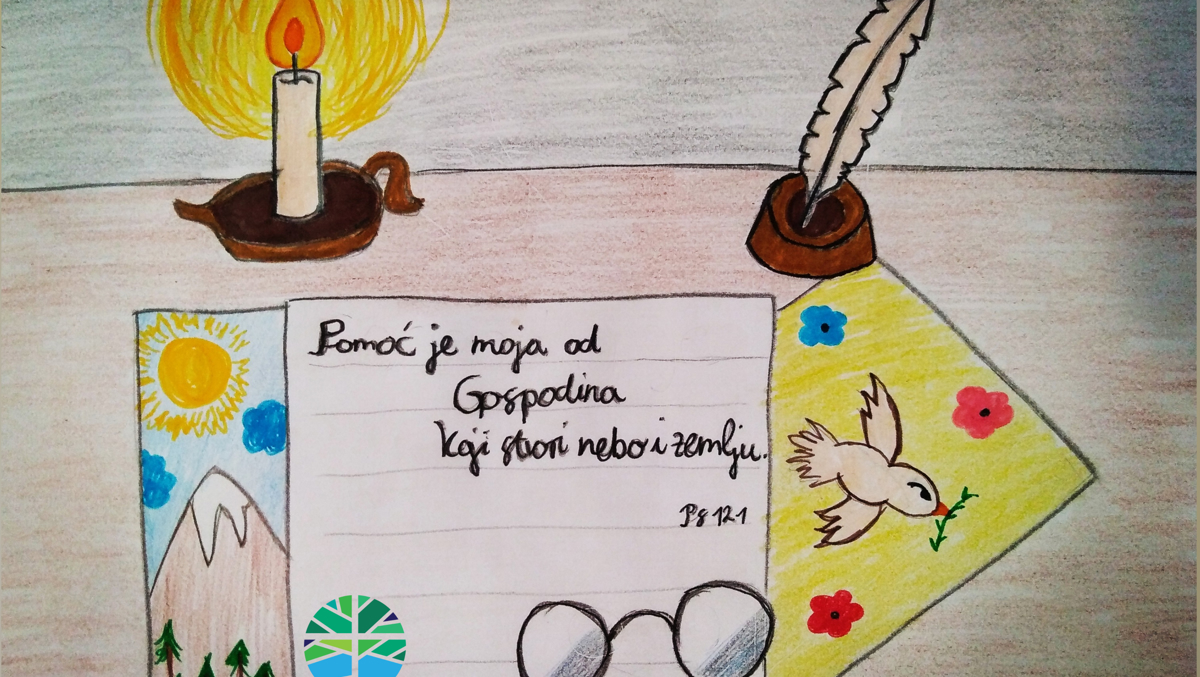 Pomoć je moja od
Gospodina
koji stvori nebo i zemlju.
Ps 121